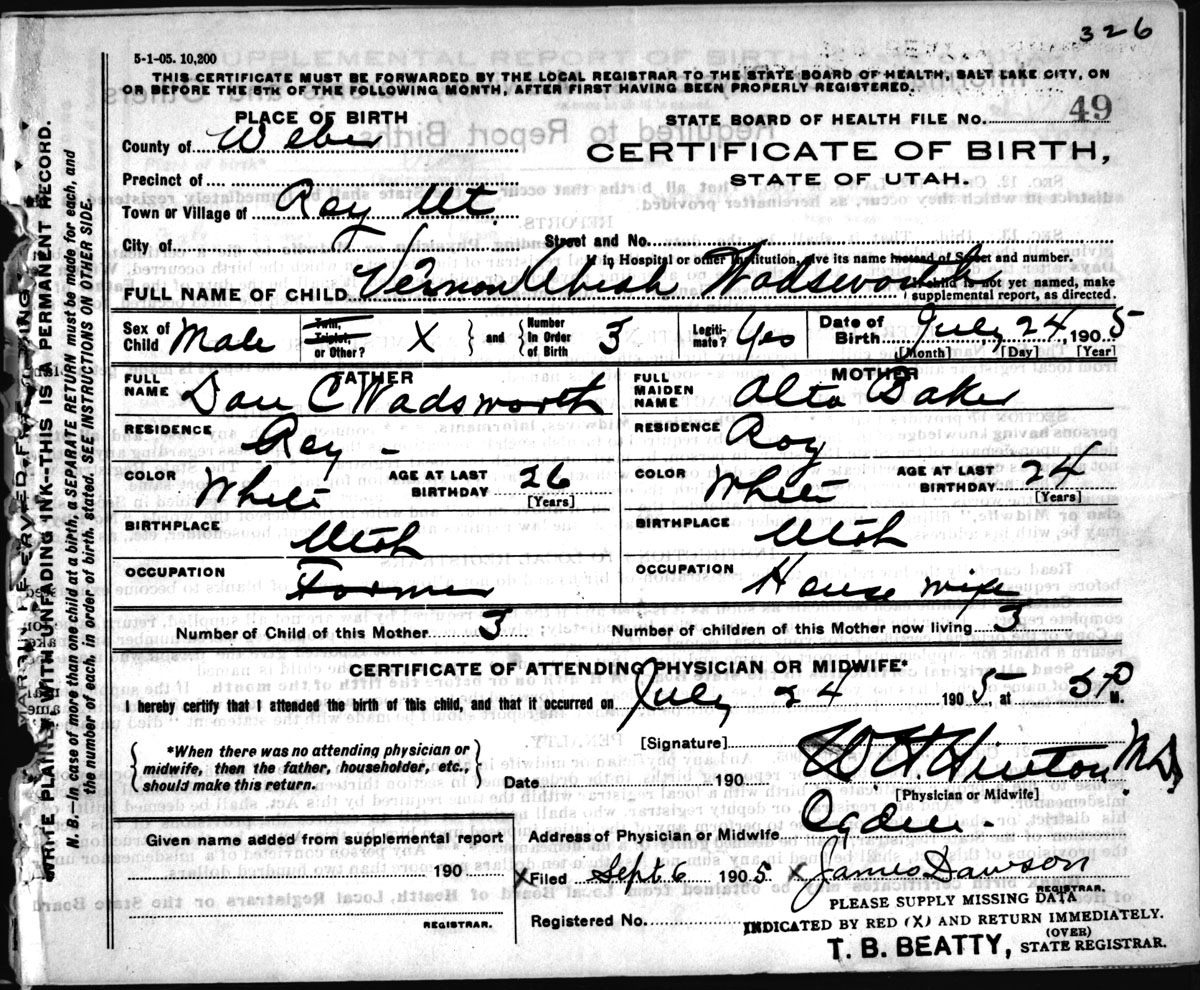 326
5-1-05. 10,200
THIS CERTIFICATE MUST BE FORWARDED BY THE LOCAL REGISTRAR TO THE STATE BOARD OF HEALTH, SALT LAKE CITY, ON
OR BEFORE THE 5TH OF THE FOLLOWING MONTH, AFTER FIRST HAVING BEEN PROPERLY REGISTERED.
PLACE OF BIRTH
STATE BOARD OF HEALTH FILE NO. 49
County of Weber
CERTIFICATE OF BIRTH,
STATE OF UTAH.
Precinct of
Town or Village of Roy Ut.
City of Street and No.
If in Hospital or other Institution, give its name instead of Street and number.
FULL NAME OF CHILD Vernon Wadsworth
If child is not yet named, make
supplemental report, as directed.
Sex of Child Male Twin, Triplet, or Other? X and Number In Order of Birth 3 Legiti- mate? Yes Date of Birth July 24, 1905
[Month] [Day] [Year]
FATHER MOTHER
FULL NAME Dan C Wadsworth FULL MAIDEN NAME Alta Baker
RESIDENCE Roy - RESIDENCE Roy
COLOR White AGE AT LAST BIRTHDAY 26 [Years] COLOR White AGE AT LAST BIRTHDAY 24 [Years]
BIRTHPLACE Utah BIRTHPLACE Utah
OCCUPATION Farmer OCCUPATION House wife
Number of Child of this Mother 3 Number of children of this Mother now living 3
CERTIFICATE OF ATTENDING PHYSICIAN OR MIDWIFE*
I hereby certify that I attended the birth of this child, and that it occurred on July 24 1905, at 5 P M.
*When there was no attending physician or
midwife, then the father, householder, etc.,
should make this return.
[Signature] W. H. Hinton MD
Date 190
[Physician or Midwife]
Given name added from supplemental report
Address of Physician or Midwife Ogden -
190
X Filed Sept 6 1905 X James Dawson
REGISTRAR.
REGISTRAR.
Registered No.
PLEASE SUPPLY MISSING DATA
INDICATED BY RED (X) AND RETURN IMMEDIATELY.
(OVER)
T. B. BEATTY, STATE REGISTRAR.
MARGIN RESERVED FOR BINDING
WRITE PLAINLY WITH UNFADING INK--THIS IS A PERMANENT RECORD.
N. B.--In case of more than one child at a birth, a SEPARATE RETURN must be made for each, and
the number of each, in order of birth, stated. SEE INSTRUCTIONS ON OTHER SIDE.